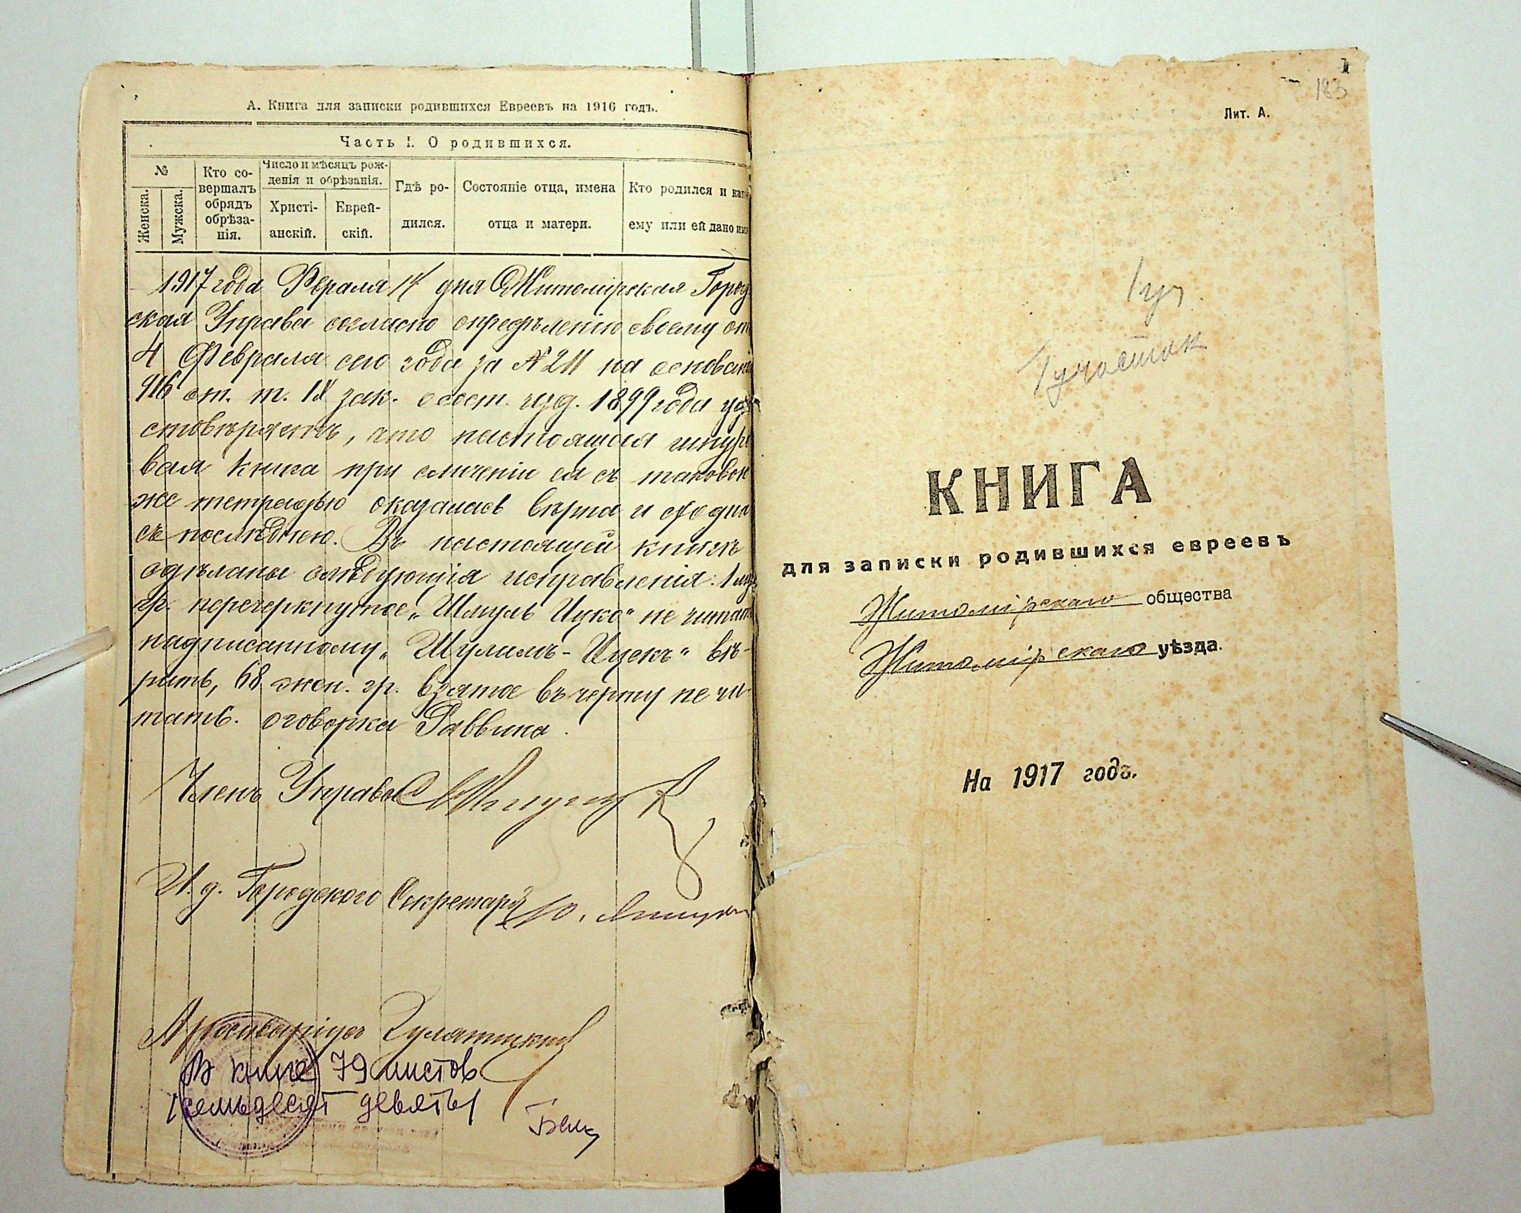 А. Книга для записки родившихся Евреевъ на 1916 годъ.
Часть I. О родившихся.
№
Женска.
Мужска.
Кто со-
вершалъ
обрядъ
обрѣза-
нія.
Число и мѣсяцъ рож-
денія и обрѣзанія.
Христі-
анскій.
Еврей-
скій.
Гдѣ ро-
дился.
Состояніе отца, имена
отца и матери.
Кто родился и како
ему или ей дано им
1917 года Февраля 14 дня Житомірская Город
ская Управа согласно опредѣленію своему от
4 Февраля сего года за № 211 на основані
916 ст. т. IX зак. о сост. изд. 1899 года удо
стовѣряетъ, что настоящая шнуро
вая книга при сличеніи ея съ таковою
же тетрадью оказалась вѣрна и сходна
съ послѣднею. Въ настоящей книгѣ
сдѣланы слѣдующія исправленія: 1 му
гр. перечеркнутое „Шмуль Ицко" не читать
надписанному „Шулимъ-Ицекъ" вѣ-
рить, 68 женс. гр. взятое въ черту не чи-
тать. оговорка Раввина.
Членъ Управы
И. д. Городского Секретаря
Архиваріусъ
В книге 79 листов
(семьдесят девять)
183
Лит. А.
1 уч
1 участок
КНИГА
для записки родившихся евреевъ
Житомірскаго общества
Житомірскаго уѣзда.
На 1917 годъ.